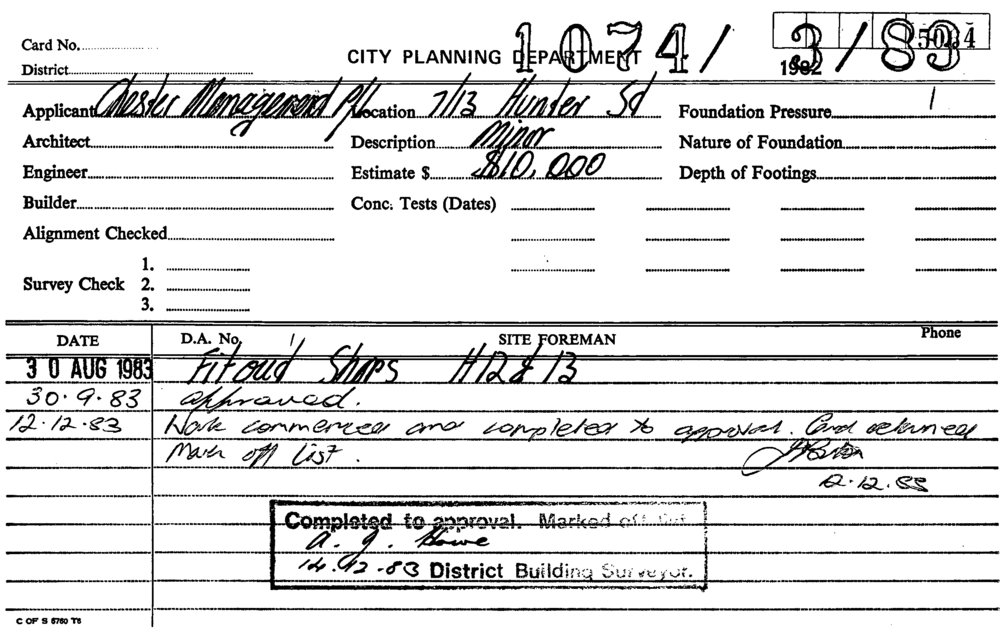 Card No.
CITY PLANNING DEPARTMENT
1074/3/83
1982
District
Applicant Chester Management P/L
Location 7/13 Hunter St
Foundation Pressure
Architect
Description Minor
Nature of Foundation
Engineer
Estimate $ $10,000
Depth of Footings
Builder
Conc. Tests (Dates)
Alignment Checked
1.
Survey Check 2.
3.
DATE D.A. No. SITE FOREMAN Phone
30 AUG 1983 Fitout Shops H12 & 13
30.9.83 approved.
12.12.83 Work commenced and completed to approval. Card returned
Mark off list.
12.83
Completed to approval. Marked off list.
A. J. Howe
14.12.83 District Building Surveyor.
C OF S 6760 T6